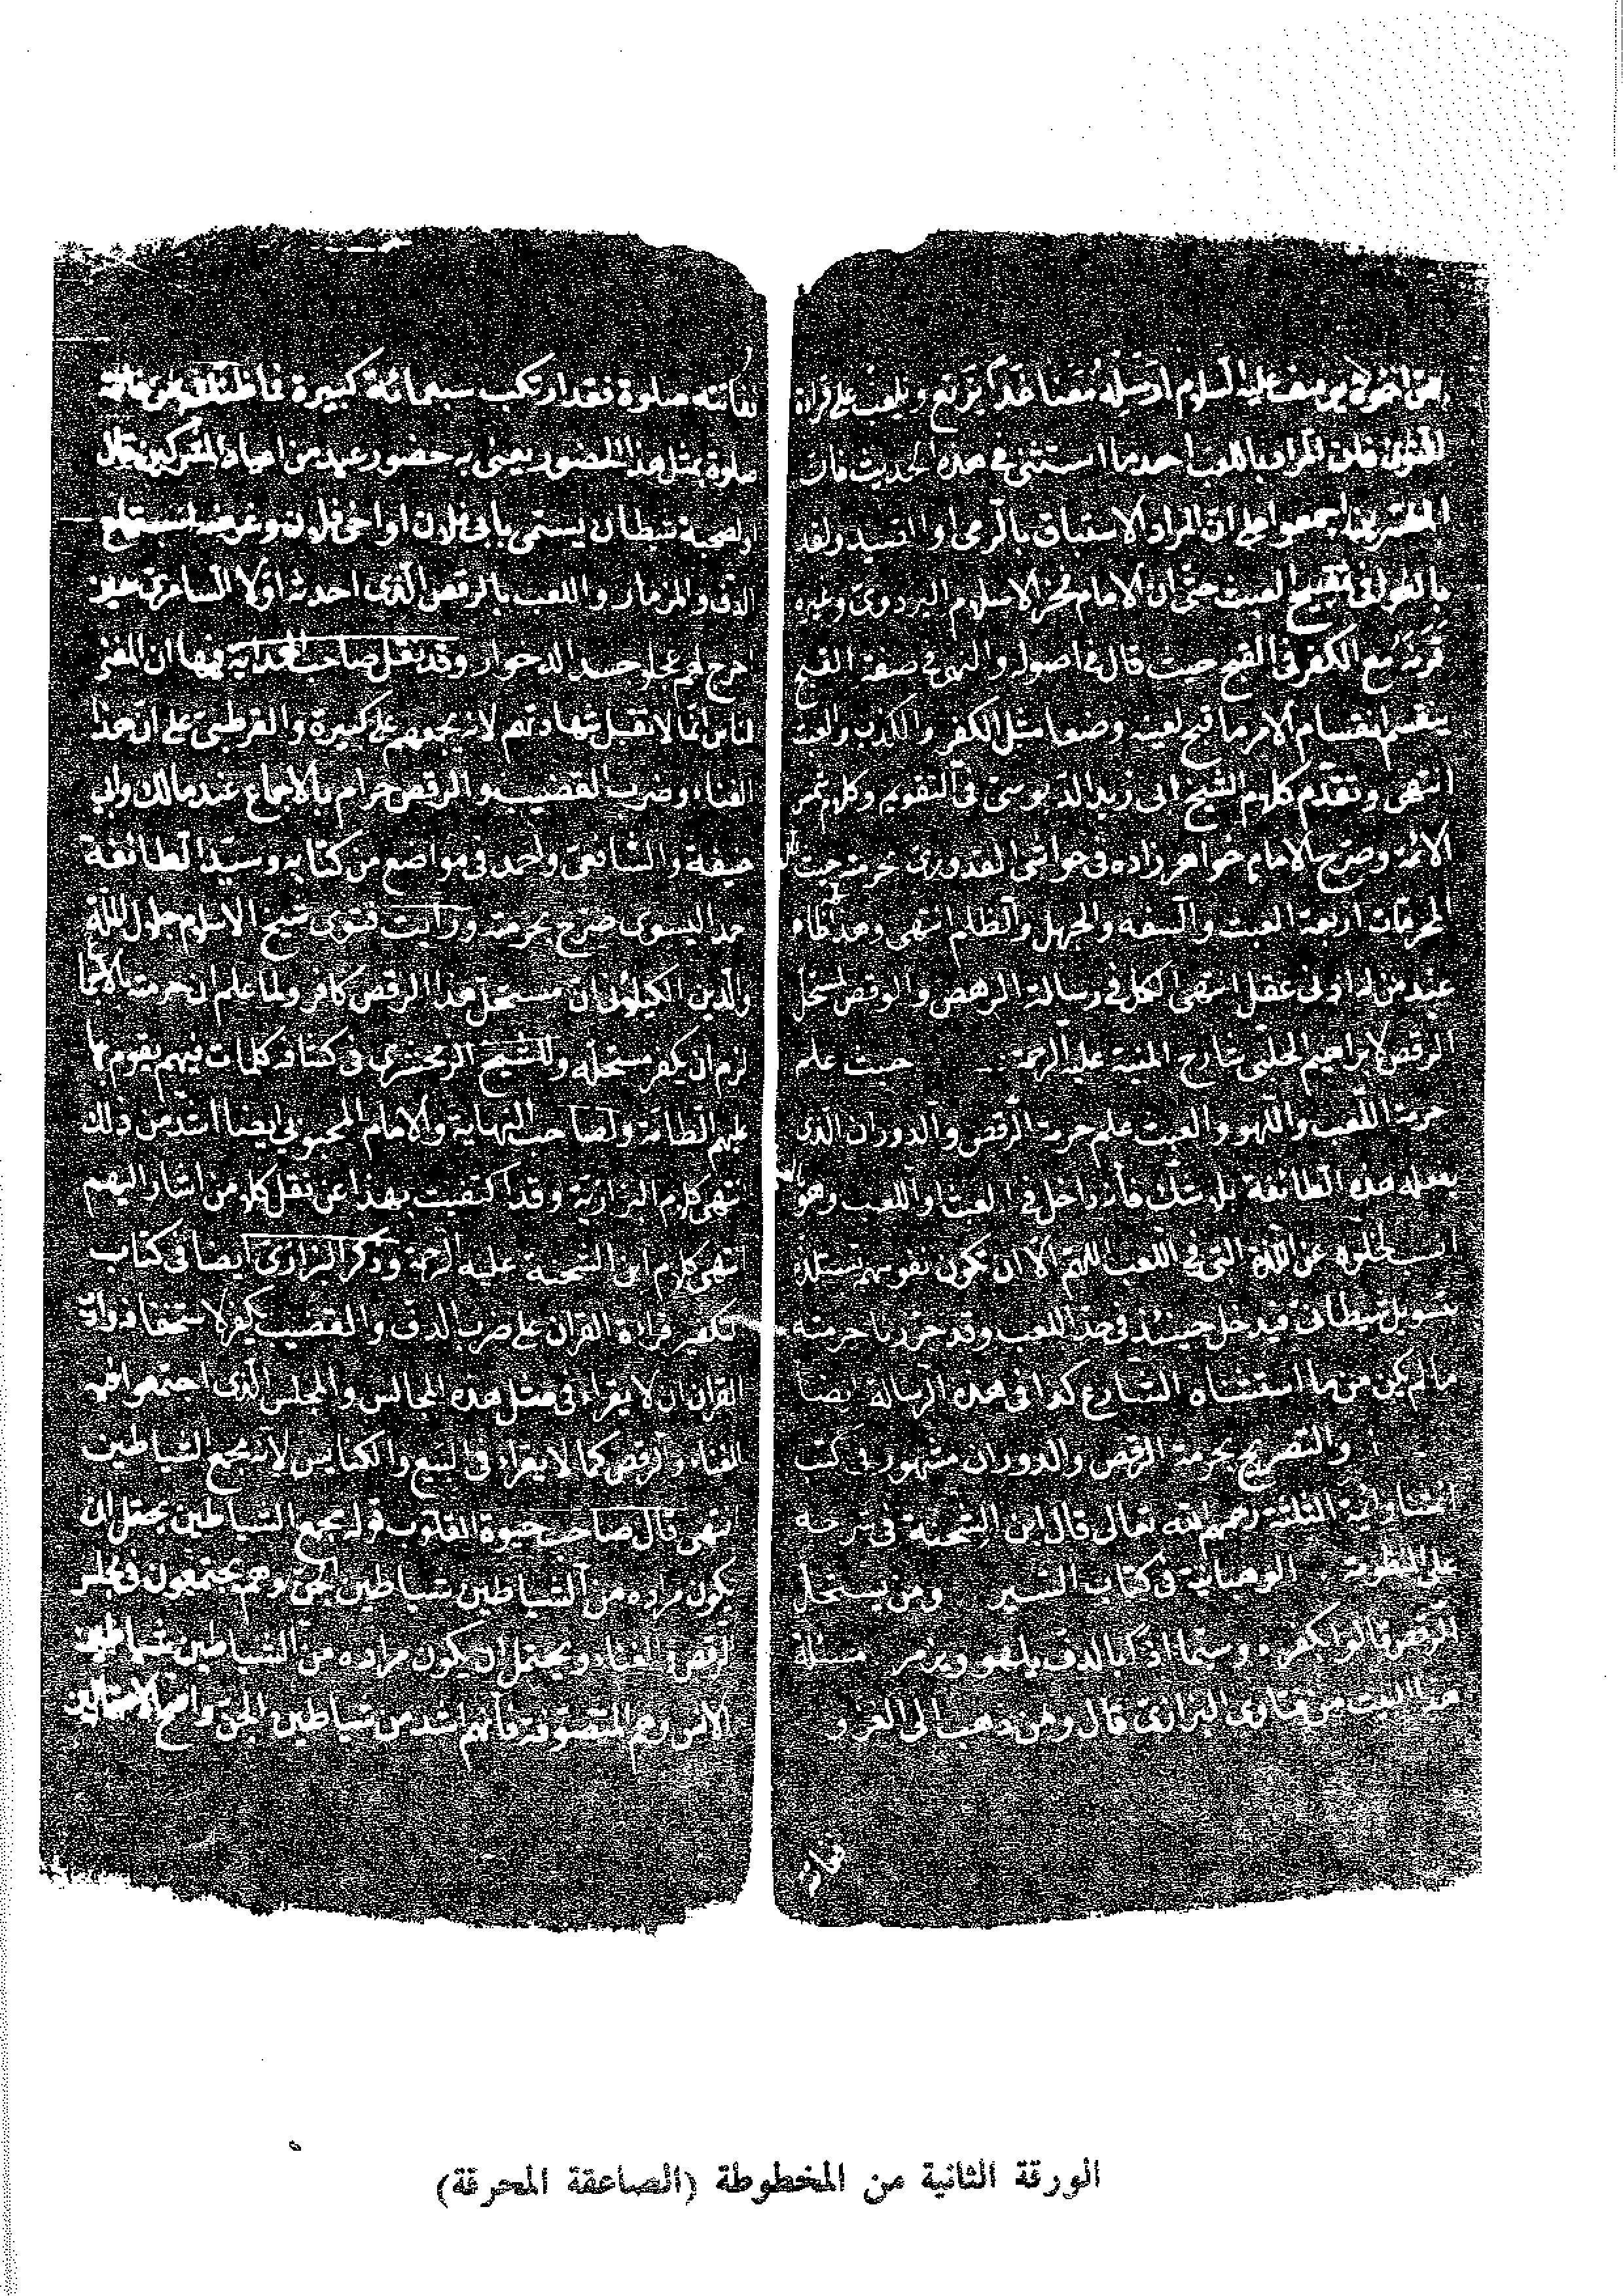 عن اخوة يوسف عليه السلام ارسله معنا غدا يرتع ويلعب على قراءة
المراد باللعب احد ما استثنى في هذه الحديث فان
المفسرين اجمعوا على ان المراد الاستباق بالرمي او الصيد ولقد
بالغوا في تقبيح العبث حتى ان الامام فخر الاسلام البزدوي وغيره
قرنه مع الكفر في القبح حيث قال في اصوله والنهي في صفة القبح
ينقسم انقسام الامر ما قبح لعينه وضعا مثل الكفر والكذب والعبث
انتهى وتقدم كلام الشيخ ابي زيد الدبوسي في التقويم وكلام شمس
الائمة وصرح الامام خواهر زاده في حواشي القدوري حرمة حيث
المحرمات اربعة العبث والسفه والجهل والظلم انتهى وهذا كاف
عند من له ادنى عقل انتهى الكل في رسالة الرهص والوقص لمستحل
الرقص لابراهيم الحلبي شارح المنية عليه الرحمة حيث علم
حرمة اللعب واللهو والعبث علم حرمة الرقص والدوران الذي
يفعله هذه الطائفة بلا شك فانه داخل في العبث واللعب وهو
لخلوه عن اللذة التي في اللعب اللهم الا ان تكون نفوسهم تستلذه
بتسويل شيطاني فيدخل حينئذ في حد اللعب وقد حرمته
ما لم يكن من ما استثناه الشارع كذا في هذه الرسالة ايضا
والتصريح بحرمة الرقص والدوران مشهور في كتب
رحمهم الله تعالى قال ابن الشحنة في شرحه
على المنظومة الوهبانية في كتاب السير ومن يستحل
الرقص قالوا بكفره وسيما اذا بالدف يلهو ويزمر مسئلة
هذا البيت من فتاوى البزازي قال ومن ذهب الى الغزو
فقاتته
فقاتته صلوة فقد ارتكب سبعمائة كبيرة
صلوة مثل هذا الحضور يعني به حضور عهد من
شيطان يسمى بابي فلان او اخي فلان وغرضه
الدف والمزمار واللعب بالرقص الذي احدثه اولا السامري حين
اخرج لهم عجلا جسدا له خوار وقد نقل صاحب الهداية فيها ان المغني
للناس انما لا تقبل شهادته لانه يجمعهم على كبيرة والقرطبي على ان هذا
الغناء وضرب القضيب والرقص حرام بالاجماع عند مالك وابي
حنيفة والشافعي واحمد في مواضع من كتابه وسيد الطائفة
احمد اليسوي صرح بحرمته ورايت فتوى شيخ الاسلام جلال الملة
والدين الكيلاني ان مستحل هذا الرقص كافر ولما علم ان حرمته بالاجماع
لزم ان يكفر مستحله وللشيخ الزمخشري في كشافه كلمات فيهم يقوم بها
عليهم الطامة ولصاحب النهاية والامام المحبوبي ايضا اشد من ذلك
انتهى كلام البزازية وقد اكتفيت بهذا عن نقل كلام من اشار اليهم
انتهى كلام ابن الشحنة عليه الرحمة وذكر البزازي ايضا في كتاب
تكفير قراءة القران على ضرب الدف والقضيب يكفر لاستخفافه وادب
القران ان لا يقرأ في مثل هذه المجالس والمجلس الذي اجتمعوا فيه
للغناء والرقص كما لا يقرأ في البيع والكنائس لانه مجمع الشياطين
انتهى قال صاحب حيوة القلوب قوله مجمع الشياطين يحتمل ان
يكون مراده من الشياطين شياطين الجن وهم يجتمعون في مجلس
الرقص والغناء ويحتمل ان يكون مراده من الشياطين شياطين
الانس وهم المتصوفة فانهم اشد من شياطين الجن
الورقة الثانية من المخطوطة (الصاعقة المحرقة)